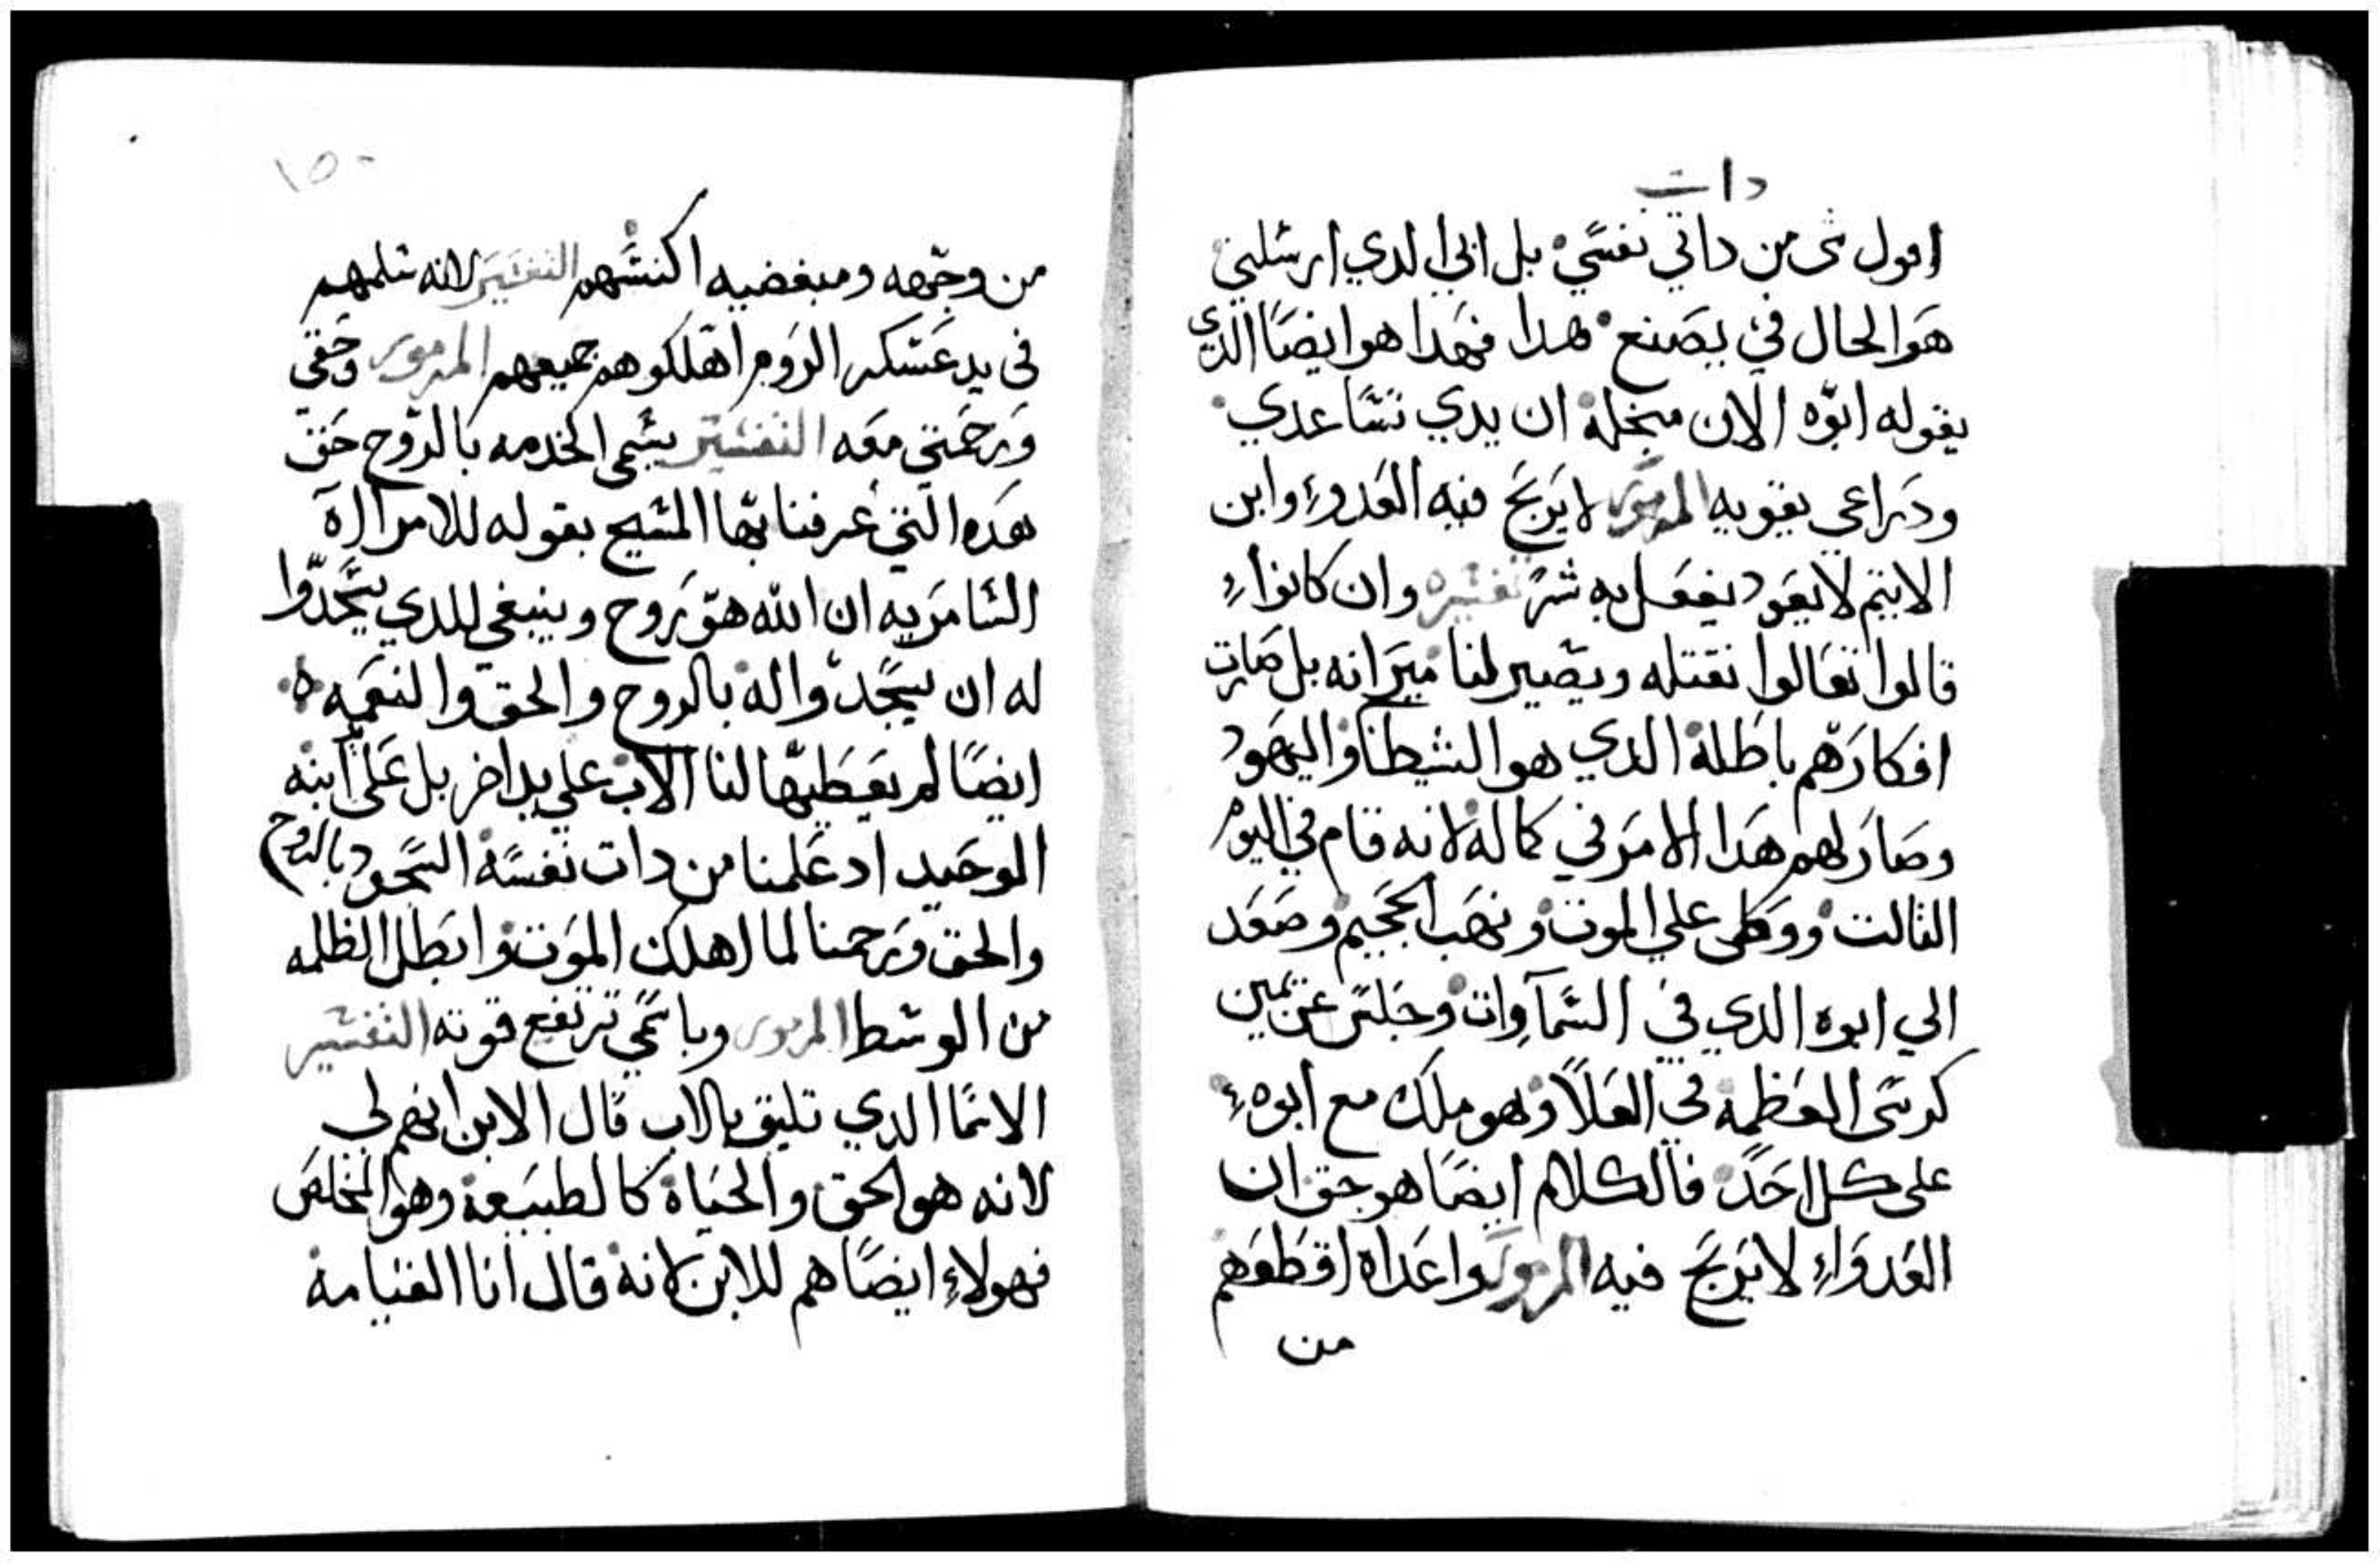 ذات
اقول شى من داتي نفسي بل ابي الدي ارسلني
هو الحال في يصنع هدا فهدا هو ايضا الدي
يقوله ابوه الان منجله ان يدي تساعدي
ودراعي يقويه المزمور لا يربح فيه العدوء وابن
الاتيم لا يعود يفعل به شر تفسيره وان كانواء
قالوا تعالوا نقتله ويصير لنا ميرانه بل صارت
افكارهم باطلة الدي هو الشيطان واليهود
وصار لهم هدا الامر في كماله لانه قام في اليوم
التالت ووطى علي الموت ونهب الجحيم وصعد
الي ابوه الدي في السماوات وجلس عن يمين
كرسى العظمه في العلا وهو ملك مع ابوهء
على كل احد فالكلام ايضا هو حق ان
العدواء لا يربح فيه المزمور واعداه اقطعهم
من
١٥٠
من وجهه ومبغضيه اكنسهم التفسير لانه سلمهم
في يد عسكر الروم اهلكوهم جميعهم المزمور وحقي
ورحمتي معه التفسير يسمى الخدمه بالروح حق
هده التي عرفنا بها المسيح بقوله للامراه
السامريه ان الله هو روح وينبغي للدي يسجدوا
له ان يسجدوا له بالروح والحق والنعمه
ايضا لم يعطيها لنا الاب علي يد اخر بل على ابنه
الوحيد اد علمنا من دات نفسه السجود بالروح
والحق ورحمنا لما اهلك الموت وابطل الظلمه
من الوسط المزمور وباسمي ترتفع قوته التفسير
الاسما الدي تليق بالاب قال الابن انهم لي
لانه هو الحق والحياة كالطبيعة وهو المخلص
فهولاء ايضا هم للابن لانه قال انا القيامة